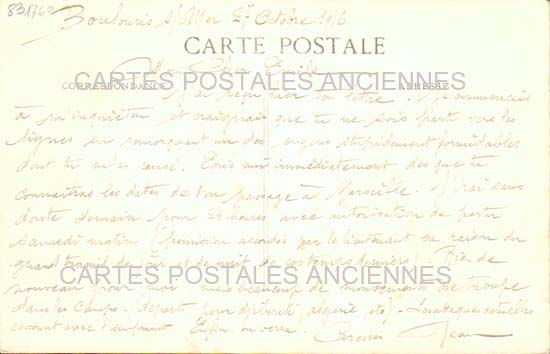 831760
Boulouris s/Mer 27 Octobre 1916
CARTE POSTALE
Mon Cher Emile
CARTES POSTALES ANCIENNES
CORRESPONDANCE
ADRESSE
J'ai reçu hier ta lettre. Je commençais
à m'inquiéter et craignais que tu ne sois parti vers les
lignes en remorquant un des engins stupidement formidables
dont tu m'as causé. Ecris moi immédiatement des que tu
connaitras les dates de ton passage à Marseille. J'irai sans
doute demain pour 24 heures avec autorisation de partir
samedi matin (permission accordée par le lieutenant en raison du
grand travail de jour et de nuit de ces temps derniers). Rien de
CARTES POSTALES ANCIENNES
nouveau pour moi mais beaucoup de mouvements de troupe
dans les camps. (départs pour Djibouti, Algérie, etc) - Les attaques
avec l'emprunt Enfin on verra. Caresses Jean